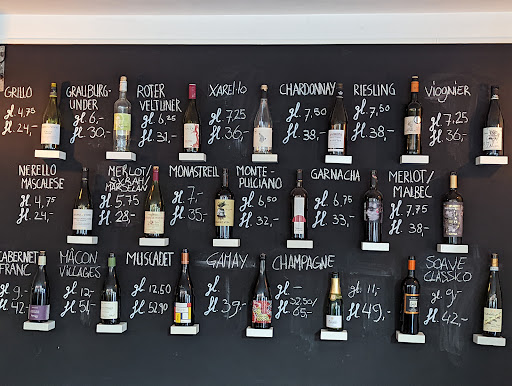 GRILLO
gl. 4,75
fl. 24,-
GRAUBURG-
UNDER
gl. 6,-
fl. 30,-
ROTER
VELTLINER
gl. 6,25
fl. 31,-
XAREL·LO
gl. 7,25
fl. 36,-
CHARDONNAY
gl. 7,50
fl. 38,-
RIESLING
gl. 7,50
fl. 38,-
VIOGNIER
gl. 7,25
fl. 36,-
NERELLO
MASCALESE
gl. 4,75
fl. 24,-
MERLOT/
MARSELAN
gl. 5,75
fl. 28,-
MONASTRELL
gl. 7,-
fl. 35,-
MONTE-
PULCIANO
gl. 6,50
fl. 32,-
GARNACHA
gl. 6,75
fl. 33,-
MERLOT/
MALBEC
gl. 7,75
fl. 38,-
CABERNET
FRANC
gl. 9,-
fl. 42,-
MÂCON
VILLAGES
gl. 12,-
fl. 54,-
MUSCADET
gl. 12,50
fl. 52,90
GAMAY
gl. -
fl. 39,-
CHAMPAGNE
gl. -
fl. 32,50/
65,-
gl. 11,-
fl. 49,-
SOAVE
CLASSICO
gl. 9,-
fl. 42,-